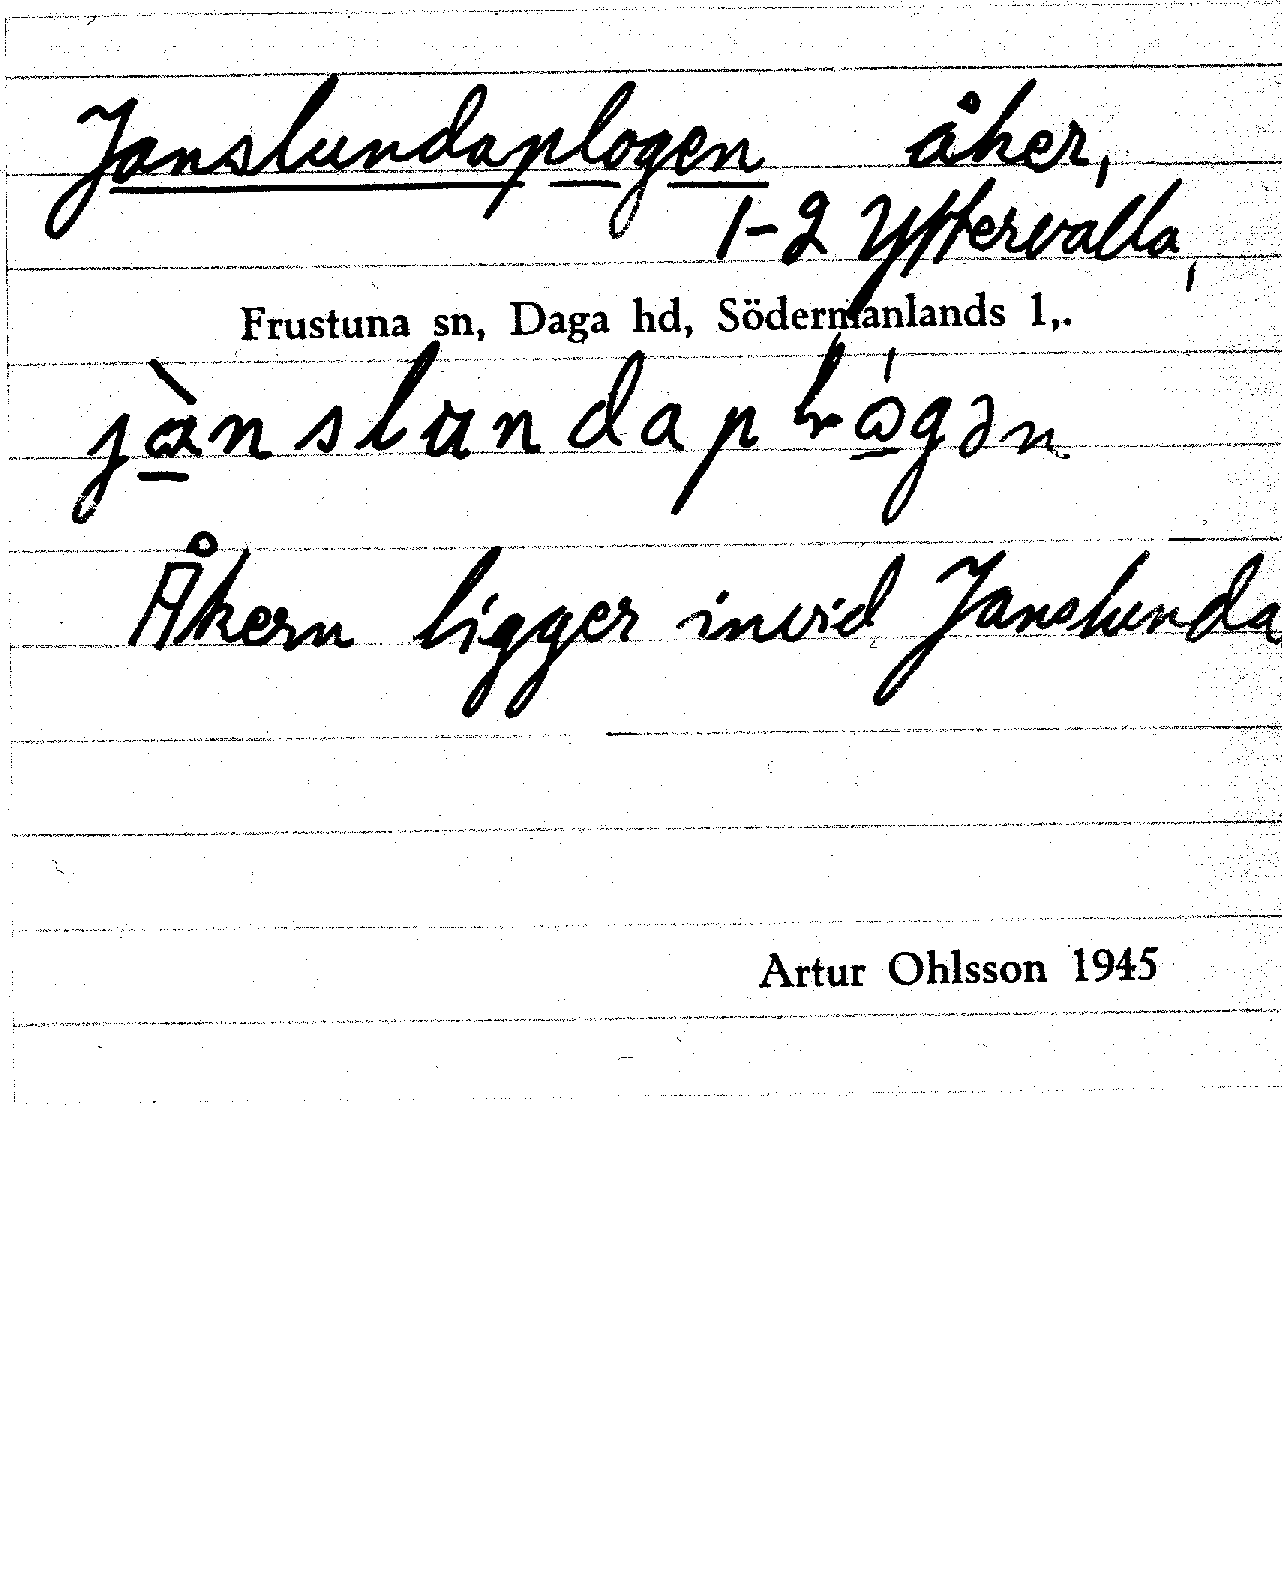 Janslundaplogen åker,
1-2 Yttervalla,
Frustuna sn, Daga hd, Södermanlands l,.
Åkern ligger invid Janslunda
Artur Ohlsson 1945